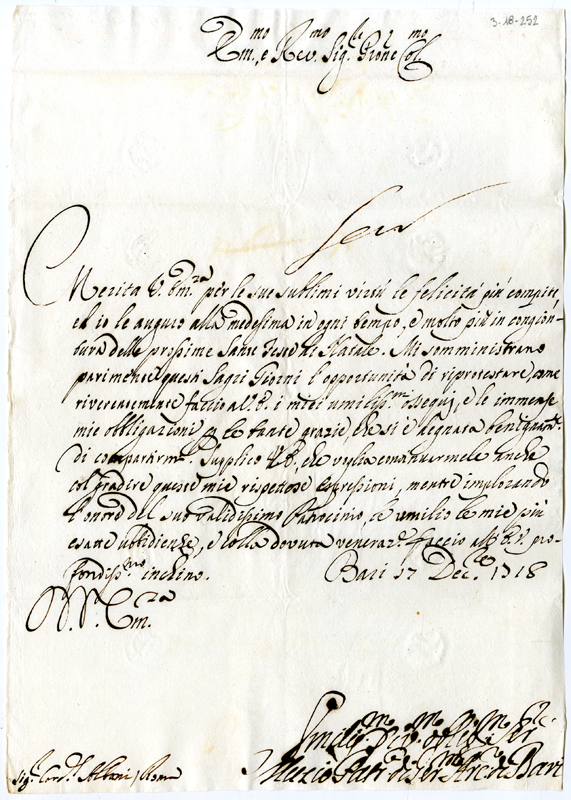 3-18-252
Em.mo e Rev.mo Sig.re P̃rone Col.mo
Merita V. Em.za per le sue sublimi virtù le felicità più compite,
ed io le auguro alla medesima in ogni tempo, e molto più in congion-
tura delle prossime Sante Feste di Natale. Mi somministrano
parimente questi Sagri Giorni l'opportunità di riprotestare, come
riverentemente faccio all'E.V. i miei umiliss.mi ossequj, e le immense
mie obbligazioni p le tante grazie, che si è degnata benignam.te
di compartirmi. Supplico V.E., che voglia emanuarmele anche
col gradire queste mie rispettose espressioni, mentre implorando
l'onore del suo validissimo Patrocinio, le umilio le mie più
esatte ubbidienze, e colla dovuta veneraz.e faccio all'E.V. pro-
fondiss.mo inchino. Bari 17 Dec.bre 1718
Em.za
Sig.r Card.l Albani, Roma
Umilis.mo Dev.mo Obblig.mo Ser.re
Muzio Arc. di Bari